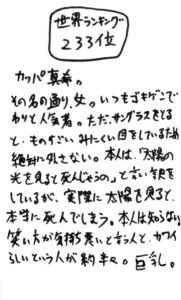 世界ランキング
233位
カッパ真希。
その名の通り、女。いつもゴキゲンで
わりと人気者。ただ、サングラスをとる
と、ものすごいみにくい目をしているため
絶対に外さない。本人は、「太陽の
光を見ると死んじゃうの」と言い訳を
しているが、実際に太陽を見ると、
本当に死んでしまう。本人は知らない。
笑い方が気持ち悪いと言う人と、カワイ
らしいという人が約半々。巨乳。